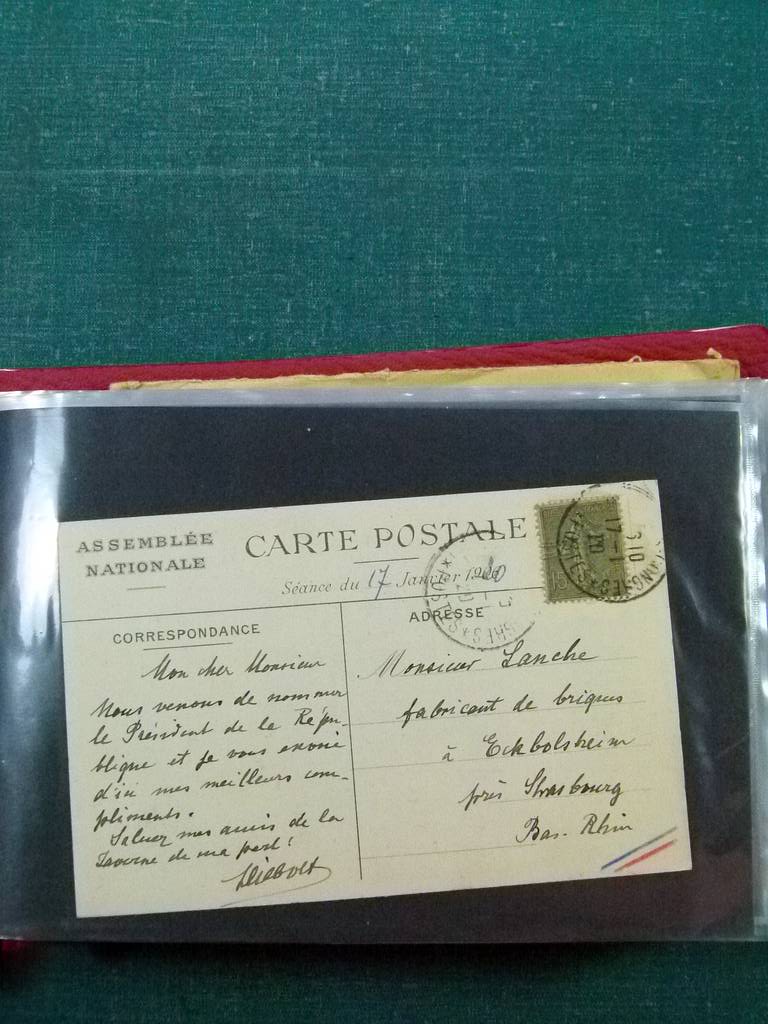 ASSEMBLÉE
NATIONALE
CARTE POSTALE
Séance du 17 Janvier 1920
CORRESPONDANCE
Mon cher Monsieur
Nous venons de nommer
le Président de la Répu-
blique et je vous envoie
d'ici mes meilleurs com-
pliments.
Saluez mes amis de la
Taverne de ma part!
ADRESSE
Monsieur Lanche
fabricant de briques
à Eckbolsheim
près Strasbourg
Bas-Rhin
15
17-1